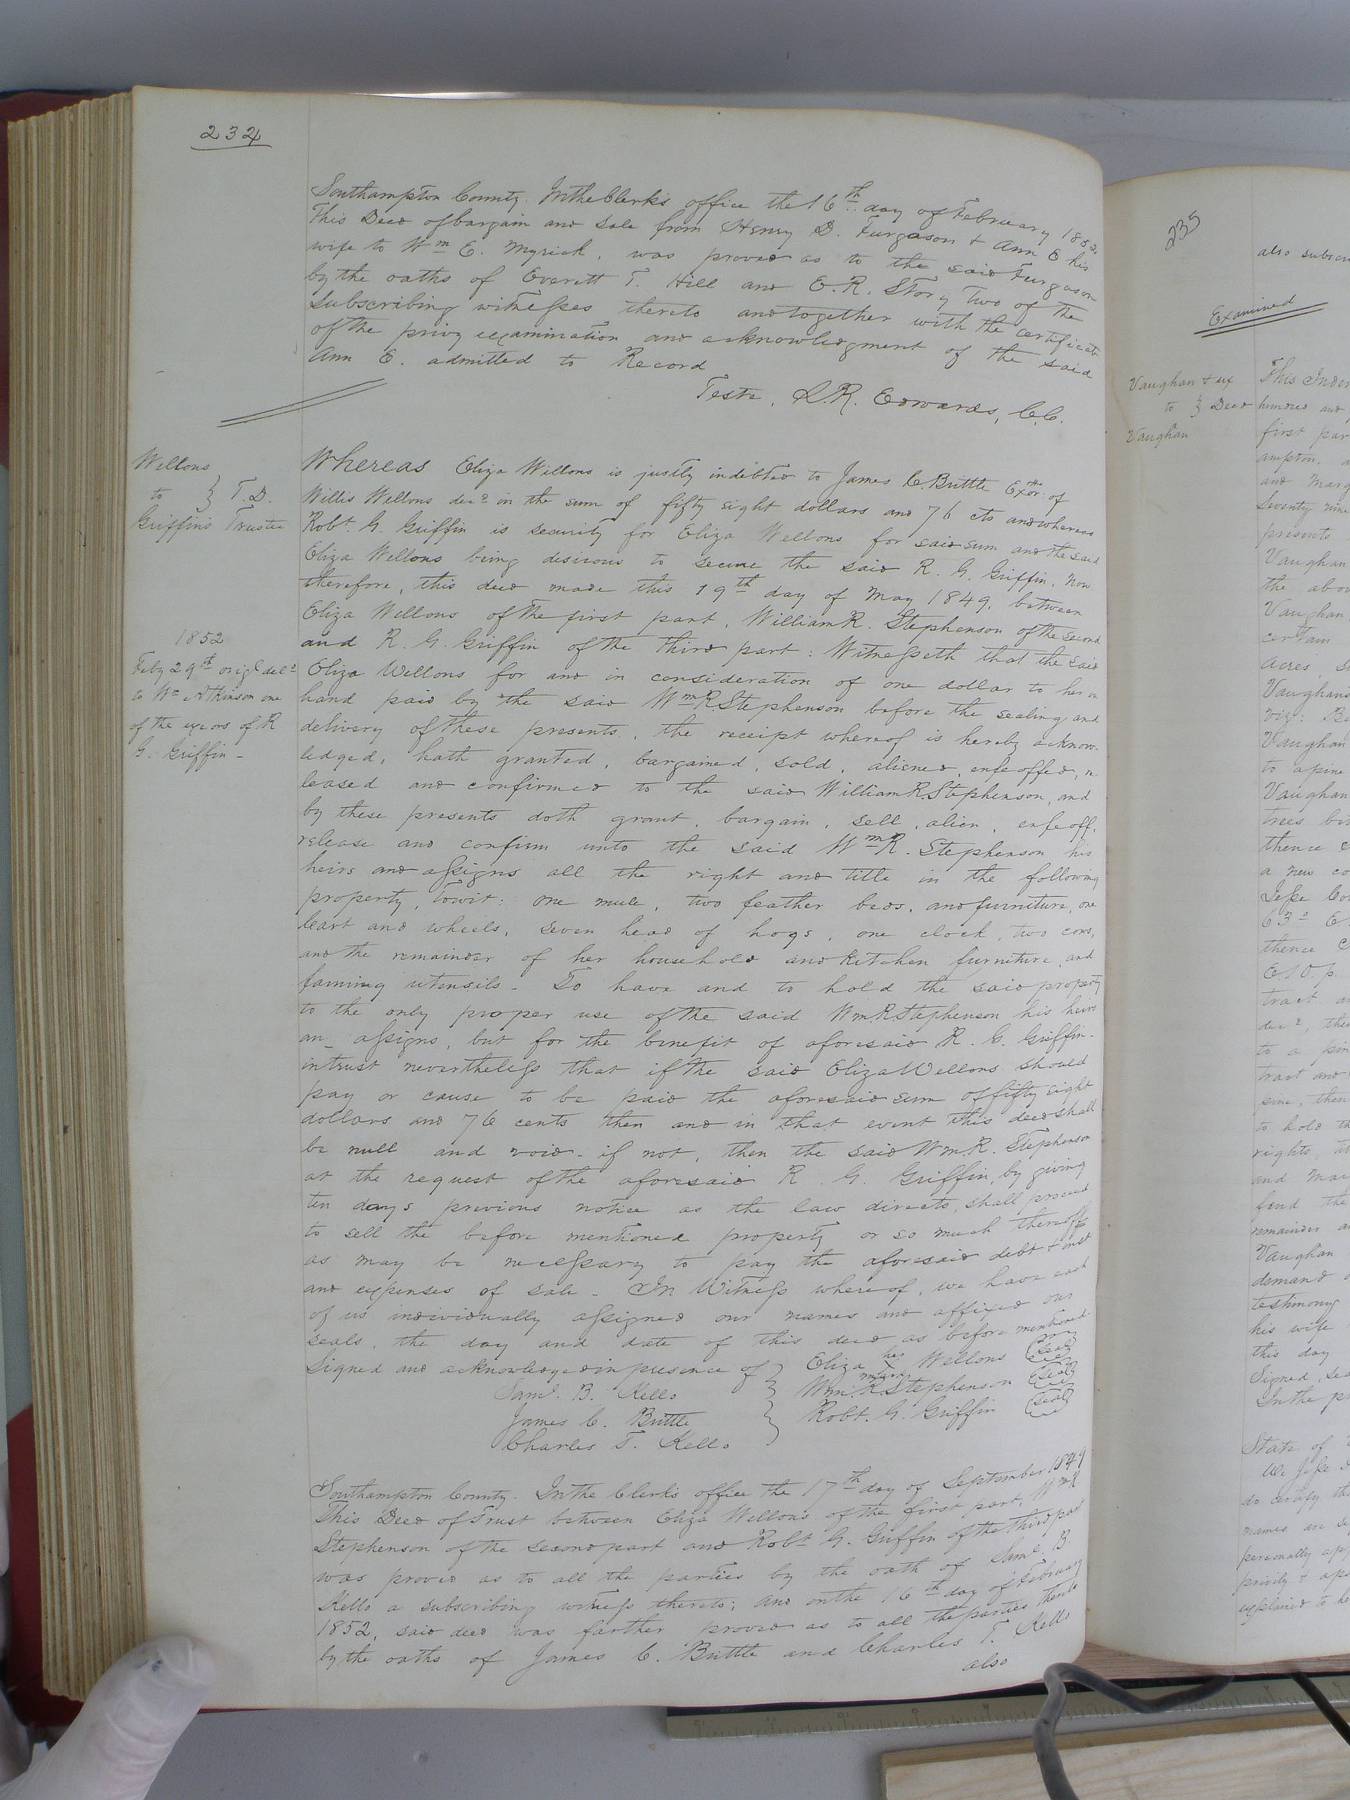 232
Southampton County. In the Clerk's office the 16th day of February 1852
This Deed of bargain and sale from Henry D. Furgason & Ann E his
wife to Wm E. Myrick, was proved as to the said Furgason
by the oaths of Everett T. Hill and E. R. Story two of the
subscribing witnesses thereto and together with the certificate
of the privy examination and acknowledgment of the said
Ann E. admitted to Record
Teste, L. R. Edwards, C.C.
Wellons
to } T. D.
Griffin's Trustee
1852
Feby 29th orig'l del'd
to Wm Atkinson one
of the exors of R
G. Griffin -
Whereas Eliza Wellons is justly indebted to James C. Brittle Exor of the
Willis Wellons decd in the sum of fifty eight dollars and 76 cts and whereas
Robt G Griffin is security for Eliza Wellons for said sum and the said
Eliza Wellons being desirous to secure the said R. G. Griffin. Now
therefore, this deed made this 19th day of May 1849, between
Eliza Wellons of the first part, William R. Stephenson of the second
and R. G. Griffin of the third part: Witnesseth that the said
Eliza Wellons for and in consideration of one dollar to her in
hand paid by the said Wm R Stephenson before the sealing and
delivery of these presents, the receipt whereof is hereby acknow-
ledged, hath granted, bargained, sold, aliened, enfeoffed, re
leased and confirmed to the said William R Stephenson, and
by these presents doth grant, bargain, sell, alien, enfeoff,
release and confirm unto the said Wm R. Stephenson his
heirs and assigns all the right and title in the following
property, towit: one mule, two feather beds, and furniture, one
Cart and wheels, seven head of hogs, one clock, two cows,
and the remainder of her household and kitchen furniture, and
farming utensils - To have and to hold the said property
to the only proper use of the said Wm R Stephenson his heirs
an_ assigns, but for the benefit of aforesaid R. G. Griffin -
intrust nevertheless that if the said Eliza Wellons should
pay or cause to be paid the aforesaid sum of fifty eight
dollars and 76 cents then and in that event this deed shall
be null and void - if not, then the said Wm R. Stephenson
at the request of the aforesaid R. G. Griffin, by giving
ten days previous notice as the law directs, shall proceed
to sell the before mentioned property or so much thereof
as may be necessary to pay the aforesaid debt & inst
and expenses of sale - In Witness whereof, we have each
of us individually assigned our names and affixed our
seals, the day and date of this deed as before mentioned.
Signed and acknowledged in presence of } Eliza her X mark Wellons (Seal)
Saml. B. Kello } Wm. R Stephenson (Seal)
James C. Brittle } Robt. G. Griffin (Seal)
Charles T. Kello
Southampton County. In the Clerk's office the 17th day of September 1849
This Deed of Trust between Eliza Wellons of the first part, Wm R
Stephenson of the second part and Robt G. Griffin of the third part
was proved as to all the parties by the oath of Saml. B.
Kello a subscribing witness thereto; and on the 16th day of February
1852, said deed was farther proved as to all the parties thereto
by the oaths of James C. Brittle and Charles T. Kello
also
235
also subscri
Examined
Vaughan & ux
to } Deed
Vaughan
This Inden
hundred and
first par
ampton, a
and Marg
Seventy nine
presents
Vaughan
the abov
Vaughan
certain
Acres
Vaughan's
viz: Be
Vaughan
to a pine
Vaughan
trees
thence
a new co
63d E
thence
tract a
decd the
to a pin
tract and
pine, then
to hold th
rights
and Mar
fend the
remainder a
Vaughan
demand
testimony
his wife
this day
Signed, Sea
In the p
State of
We
do certify tha
names are
personally app
privily & apa
explained to he